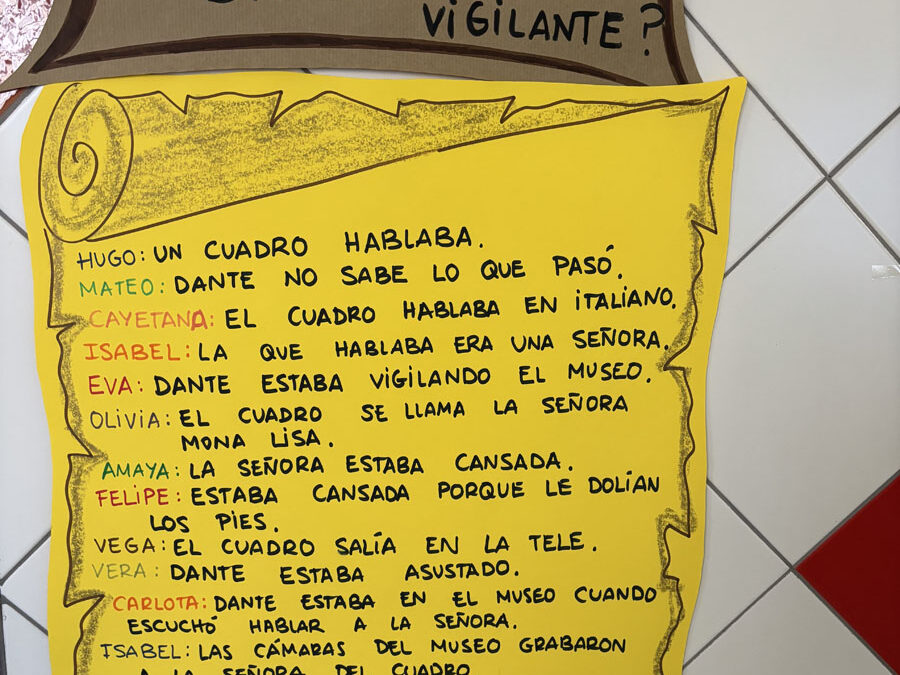 VIGILANTE?
HUGO: UN CUADRO HABLABA.
MATEO: DANTE NO SABE LO QUE PASÓ.
CAYETANA: EL CUADRO HABLABA EN ITALIANO.
ISABEL: LA QUE HABLABA ERA UNA SEÑORA.
EVA: DANTE ESTABA VIGILANDO EL MUSEO.
OLIVIA: EL CUADRO SE LLAMA LA SEÑORA
MONA LISA.
AMAYA: LA SEÑORA ESTABA CANSADA.
FELIPE: ESTABA CANSADA PORQUE LE DOLÍAN
LOS PIES.
VEGA: EL CUADRO SALÍA EN LA TELE.
VERA: DANTE ESTABA ASUSTADO.
CARLOTA: DANTE ESTABA EN EL MUSEO CUANDO
ESCUCHÓ HABLAR A LA SEÑORA.
ISABEL: LAS CÁMARAS DEL MUSEO GRABARON
A LA SEÑORA DEL CUADRO